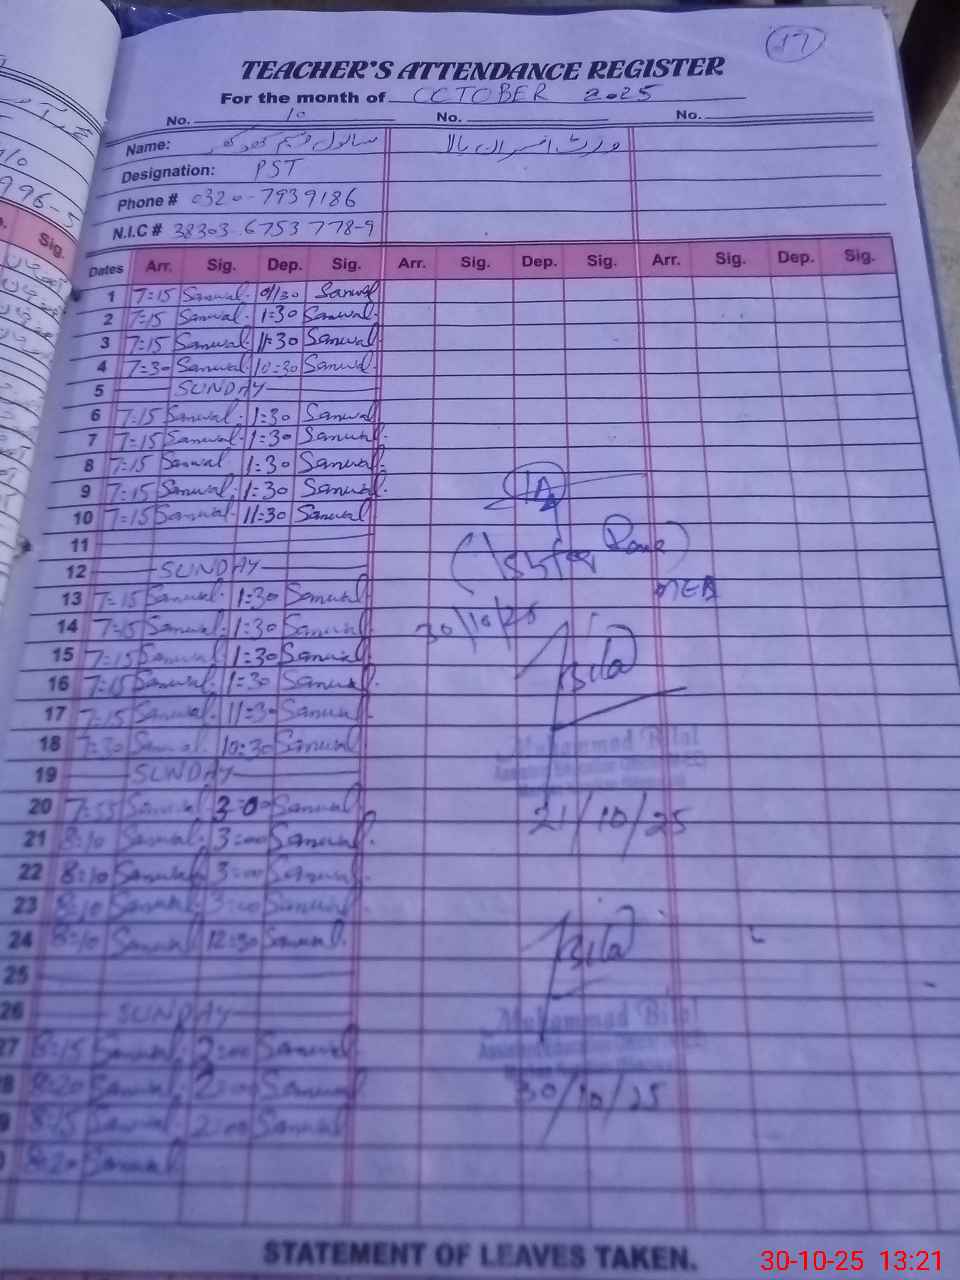 17
TEACHER'S ATTENDANCE REGISTER
For the month of OCTOBER 2025
No. 10 No. No.
Name:
Designation: PST
Phone # 0320-7939186
N.I.C # 38303-6753778-9
Sig.
Dates Arr. Sig. Dep. Sig. Arr. Sig. Dep. Sig. Arr. Sig. Dep. Sig.
1 7:15 Sanwal. Sanwal
2 7:15 Sanwal. 1:30 Sanwal.
3 7:15 Sanwal. 11:30 Sanwal.
4 7:30 Sanwal. 10:30 Sanwal.
5 SUNDAY
6 7:15 Sanwal. 1:30 Sanwal
7 7:15 Sanwal. 1:30 Sanwal.
8 7:15 Sanwal 1:30 Sanwal.
9 7:15 Sanwal. 1:30 Sanwal.
10 7:15 Sanwal. 11:30 Sanwal
11
12 SUNDAY
13 7:15 Sanwal. 1:30 Sanwal. MEA
14 7:15 Sanwal. 1:30 Sanwal. 30/10/25
15 7:15 Sanwal. 1:30 Sanwal. Bilal
16 7:15 Sanwal. 1:30 Sanwal.
17 7:15 Sanwal. 11:30 Sanwal.
18 7:30 Sanwal. 10:30 Sanwal Muhammad Bilal
19 SUNDAY
20 7:55 Sanwal 3:00 Sanwal. 21/10/25
21 8:10 Sanwal. 3:00 Sanwal.
22 8:10 Sanwal 3:00 Sanwal.
23 8:10 Sanwal. 3:00 Sanwal.
24 8:10 Sanwal 12:30 Sanwal. Bilal
25
26 SUNDAY Muhammad Bilal
27 8:15 Sanwal. 2:00 Sanwal.
8 8:20 Sanwal. 2:00 Sanwal 30/10/25
9 8:15 Sanwal. 2:00 Sanwal
0 8:20 Sanwal
STATEMENT OF LEAVES TAKEN.
30-10-25 13:21